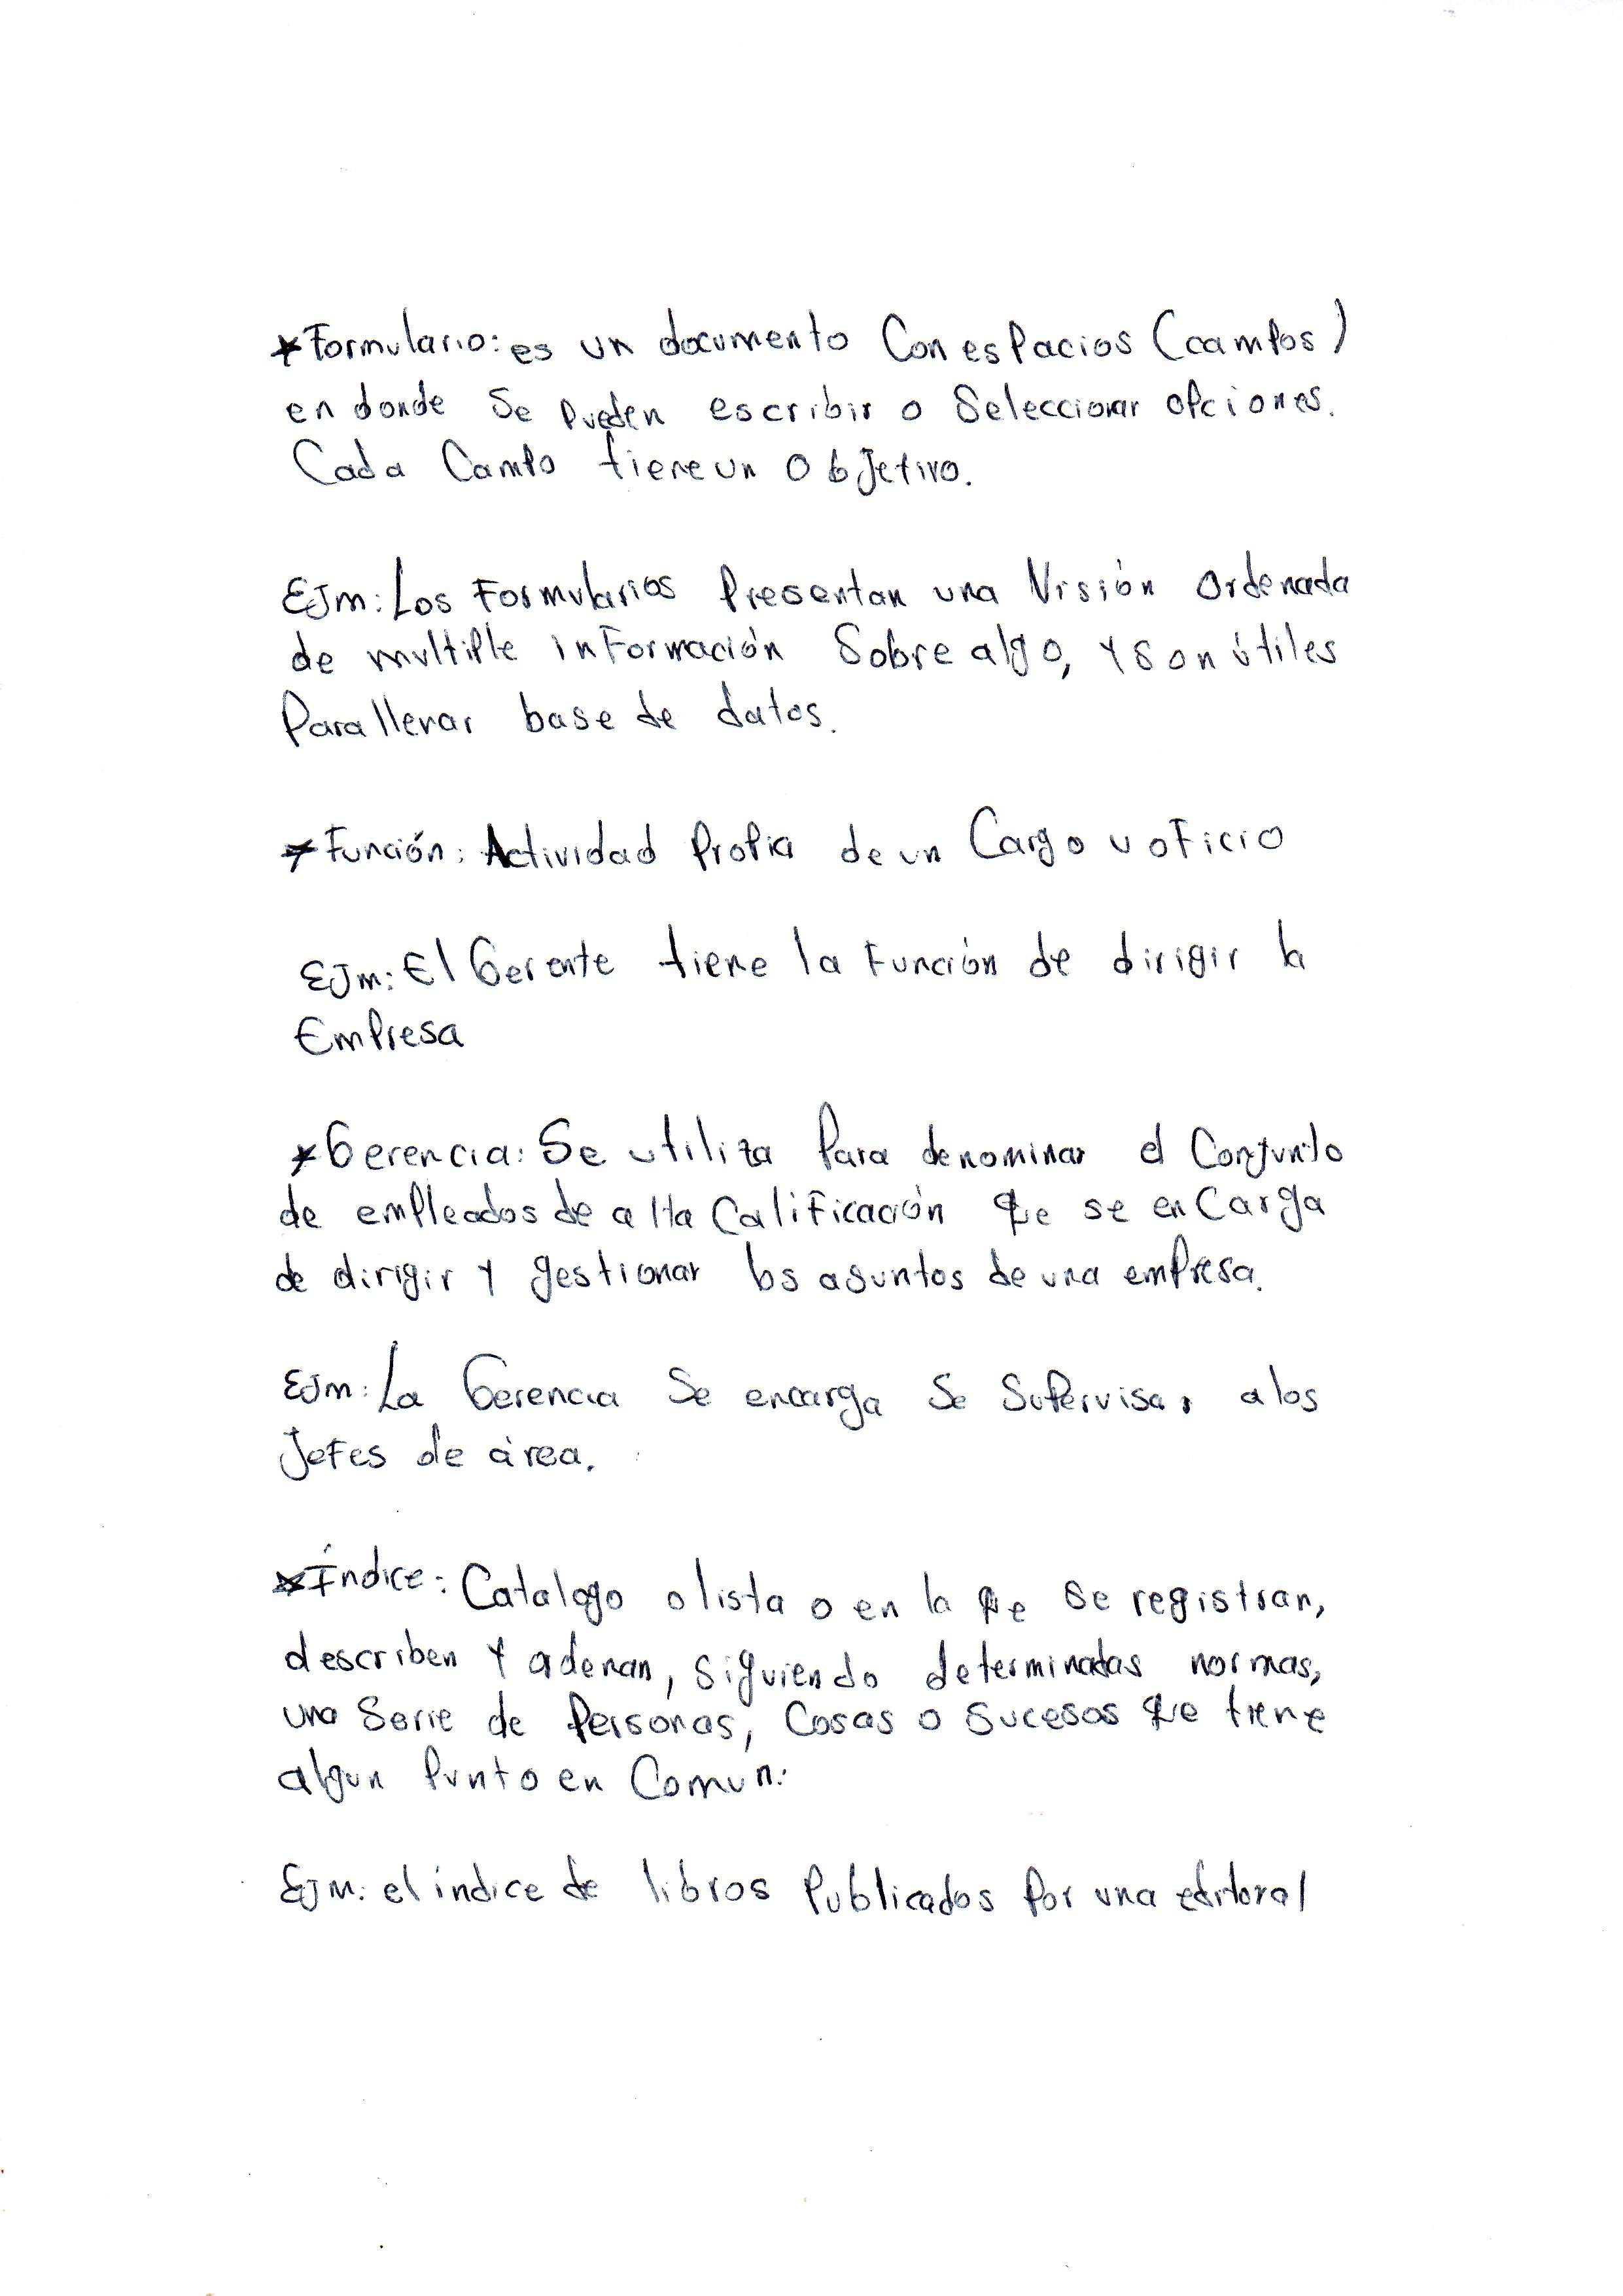 *Formulario: es un documento Con espacios (campos)
en donde Se pueden escribir o Seleccionar opciones.
Cada Campo tiene un objetivo.
EJm: Los Formularios Presentan una Visión Ordenada
de multiple información Sobre algo, y son útiles
Para llevar base de datos.
*Función: Actividad Propia de un Cargo u oficio
EJm: El Gerente tiene la función de dirigir la
Empresa
*Gerencia: Se utiliza Para denominar el Conjunto
de empleados de alta Calificación que se encarga
de dirigir y gestionar los asuntos de una empresa.
EJm: La Gerencia Se encarga Se Supervisar a los
Jefes de área.
*Índice: Catalogo o lista o en la que se registran,
describen y ordenan, siguiendo determinadas normas,
una Serie de Personas, Cosas o sucesos que tiene
algun Punto en Comun.
EJM: el índice de libros Publicados Por una editoral